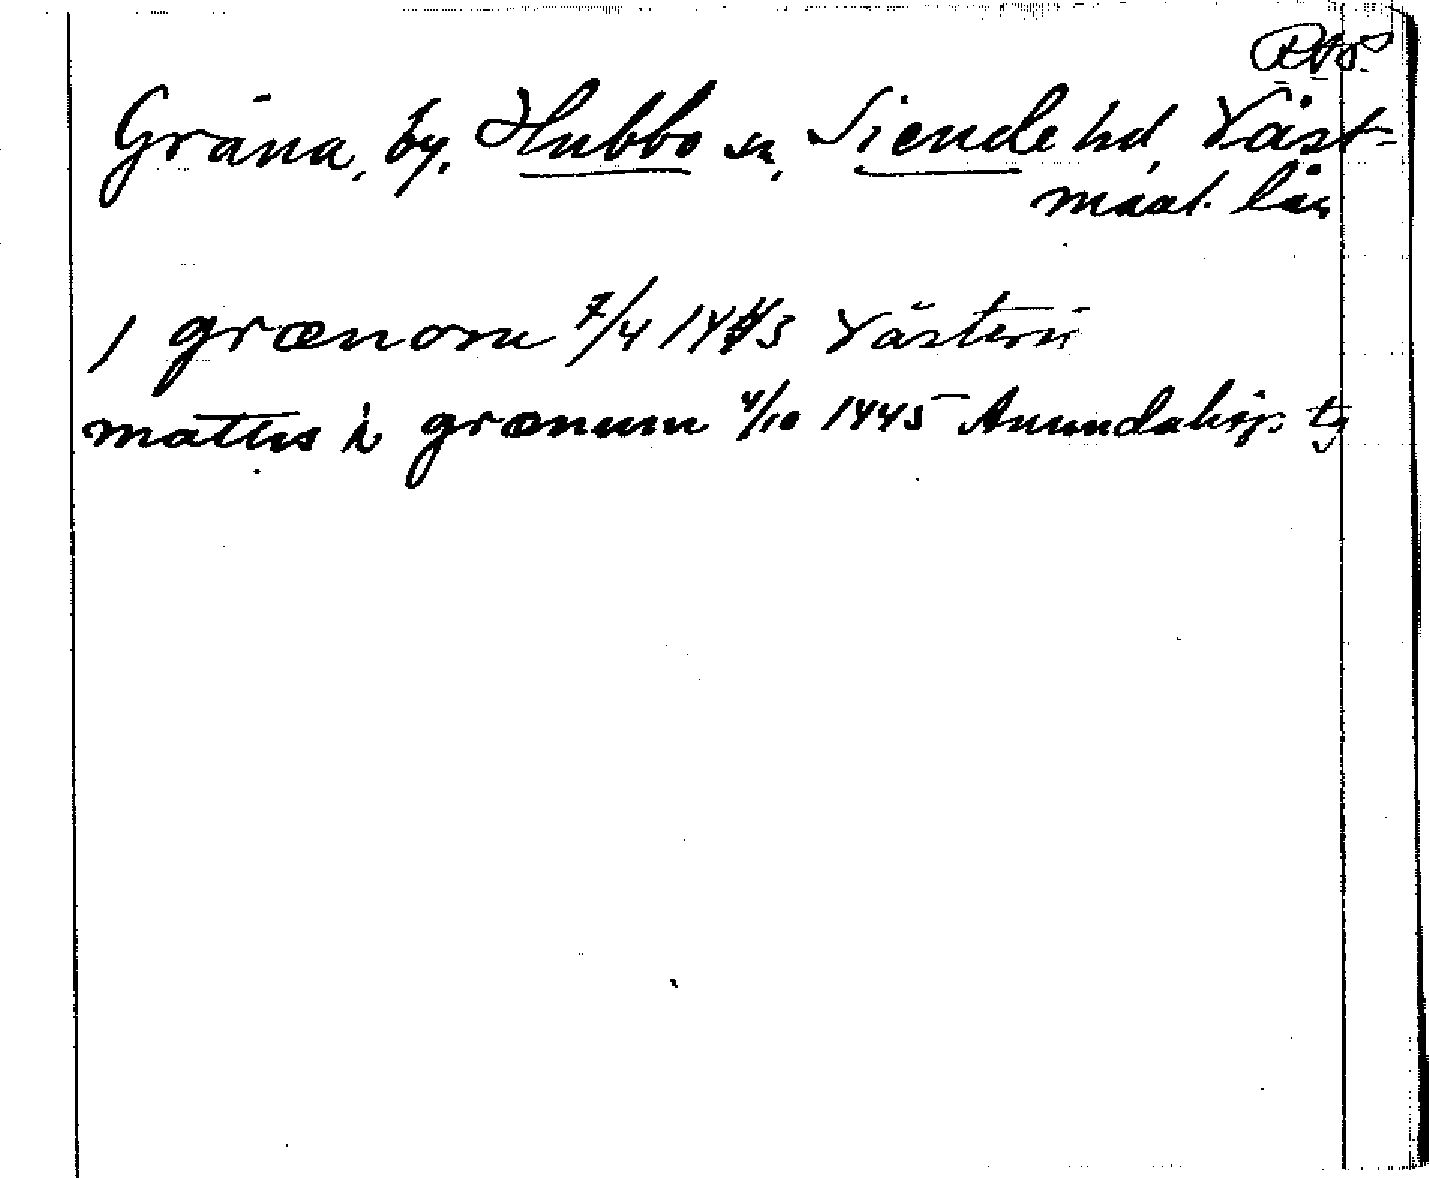 Gräna, by, Hubbo sn, Siende hd, Väst-
manl. län
I grænom 7/4 1443 Västerås
mattis i grænum 4/10 1445 Anundahög tg